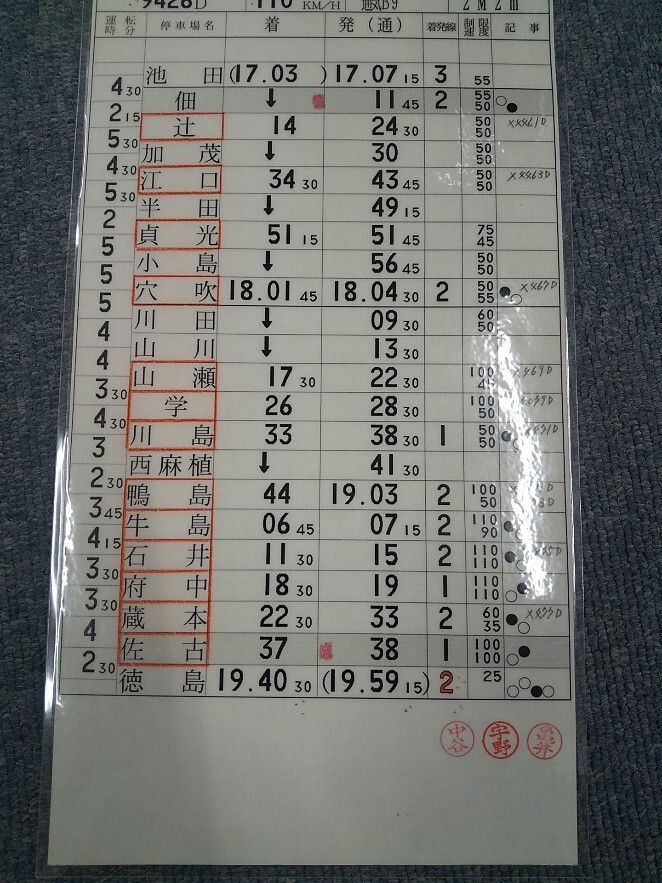 9428D 110 KM/H 2M2m
運転時分 停車場名 着 発（通） 着発線 制限速度 記事
池田 (17.03 ) 17.07 15 3 55
4 30
佃 ↓ 11 45 2 55 50
2 15
辻 14 24 30 50 50 ×4461D
5 30
加茂 ↓ 30 50 50
4 30
江口 34 30 43 45 50 50 ×4463D
5 30
半田 ↓ 49 15
2
貞光 51 15 51 45 75 45
5
小島 ↓ 56 45 50 50
5
穴吹 18.01 45 18.04 30 2 50 55 ×467D
5
川田 ↓ 09 30 60 50
4
山川 ↓ 13 30
4
山瀬 17 30 22 30 100 45
3 30
学 26 28 30 100 50
4 30
川島 33 38 30 1 50 50
3
西麻植 ↓ 41 30
2 30
鴨島 44 19.03 2 100 50
3 45
牛島 06 45 07 15 2 110 90
4 15
石井 11 30 15 2 110 110
3 30
府中 18 30 19 1 110 110
3 30
蔵本 22 30 33 2 60 35
4
佐古 37 38 1 100 100
2 30
徳島 19.40 30 (19.59 15) 2 25
中谷 宇野